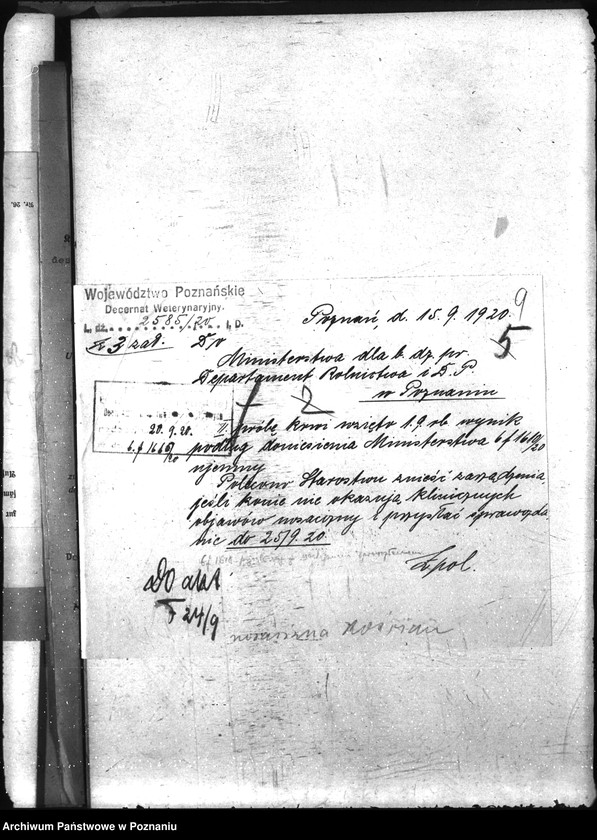 Województwo Poznańskie
Decernat Weterynaryjny.
L. dz. 2585/20 I, D.
Poznań, d. 15. 9. 1920.
9
5
3 zał.
Do
Ministerstwa dla b. dz. pr.
Departament Rolnictwa i D. P.
w Poznaniu
2
20. 9. 20.
III próbę krwi wzięto 1.9. rb. wynik
podług doniesienia Ministerstwa 6f 1610/20
ujemny
Polecono Starostwu znieść zarządzenia
jeśli konie nie okazują klinicznych
objawów nosacizny i przysłać sprawozda
nie do 25/9. 20.
ado akt
24/9
nosacizna Kościan
Nr. 26.
Archiwum Państwowe w Poznaniu